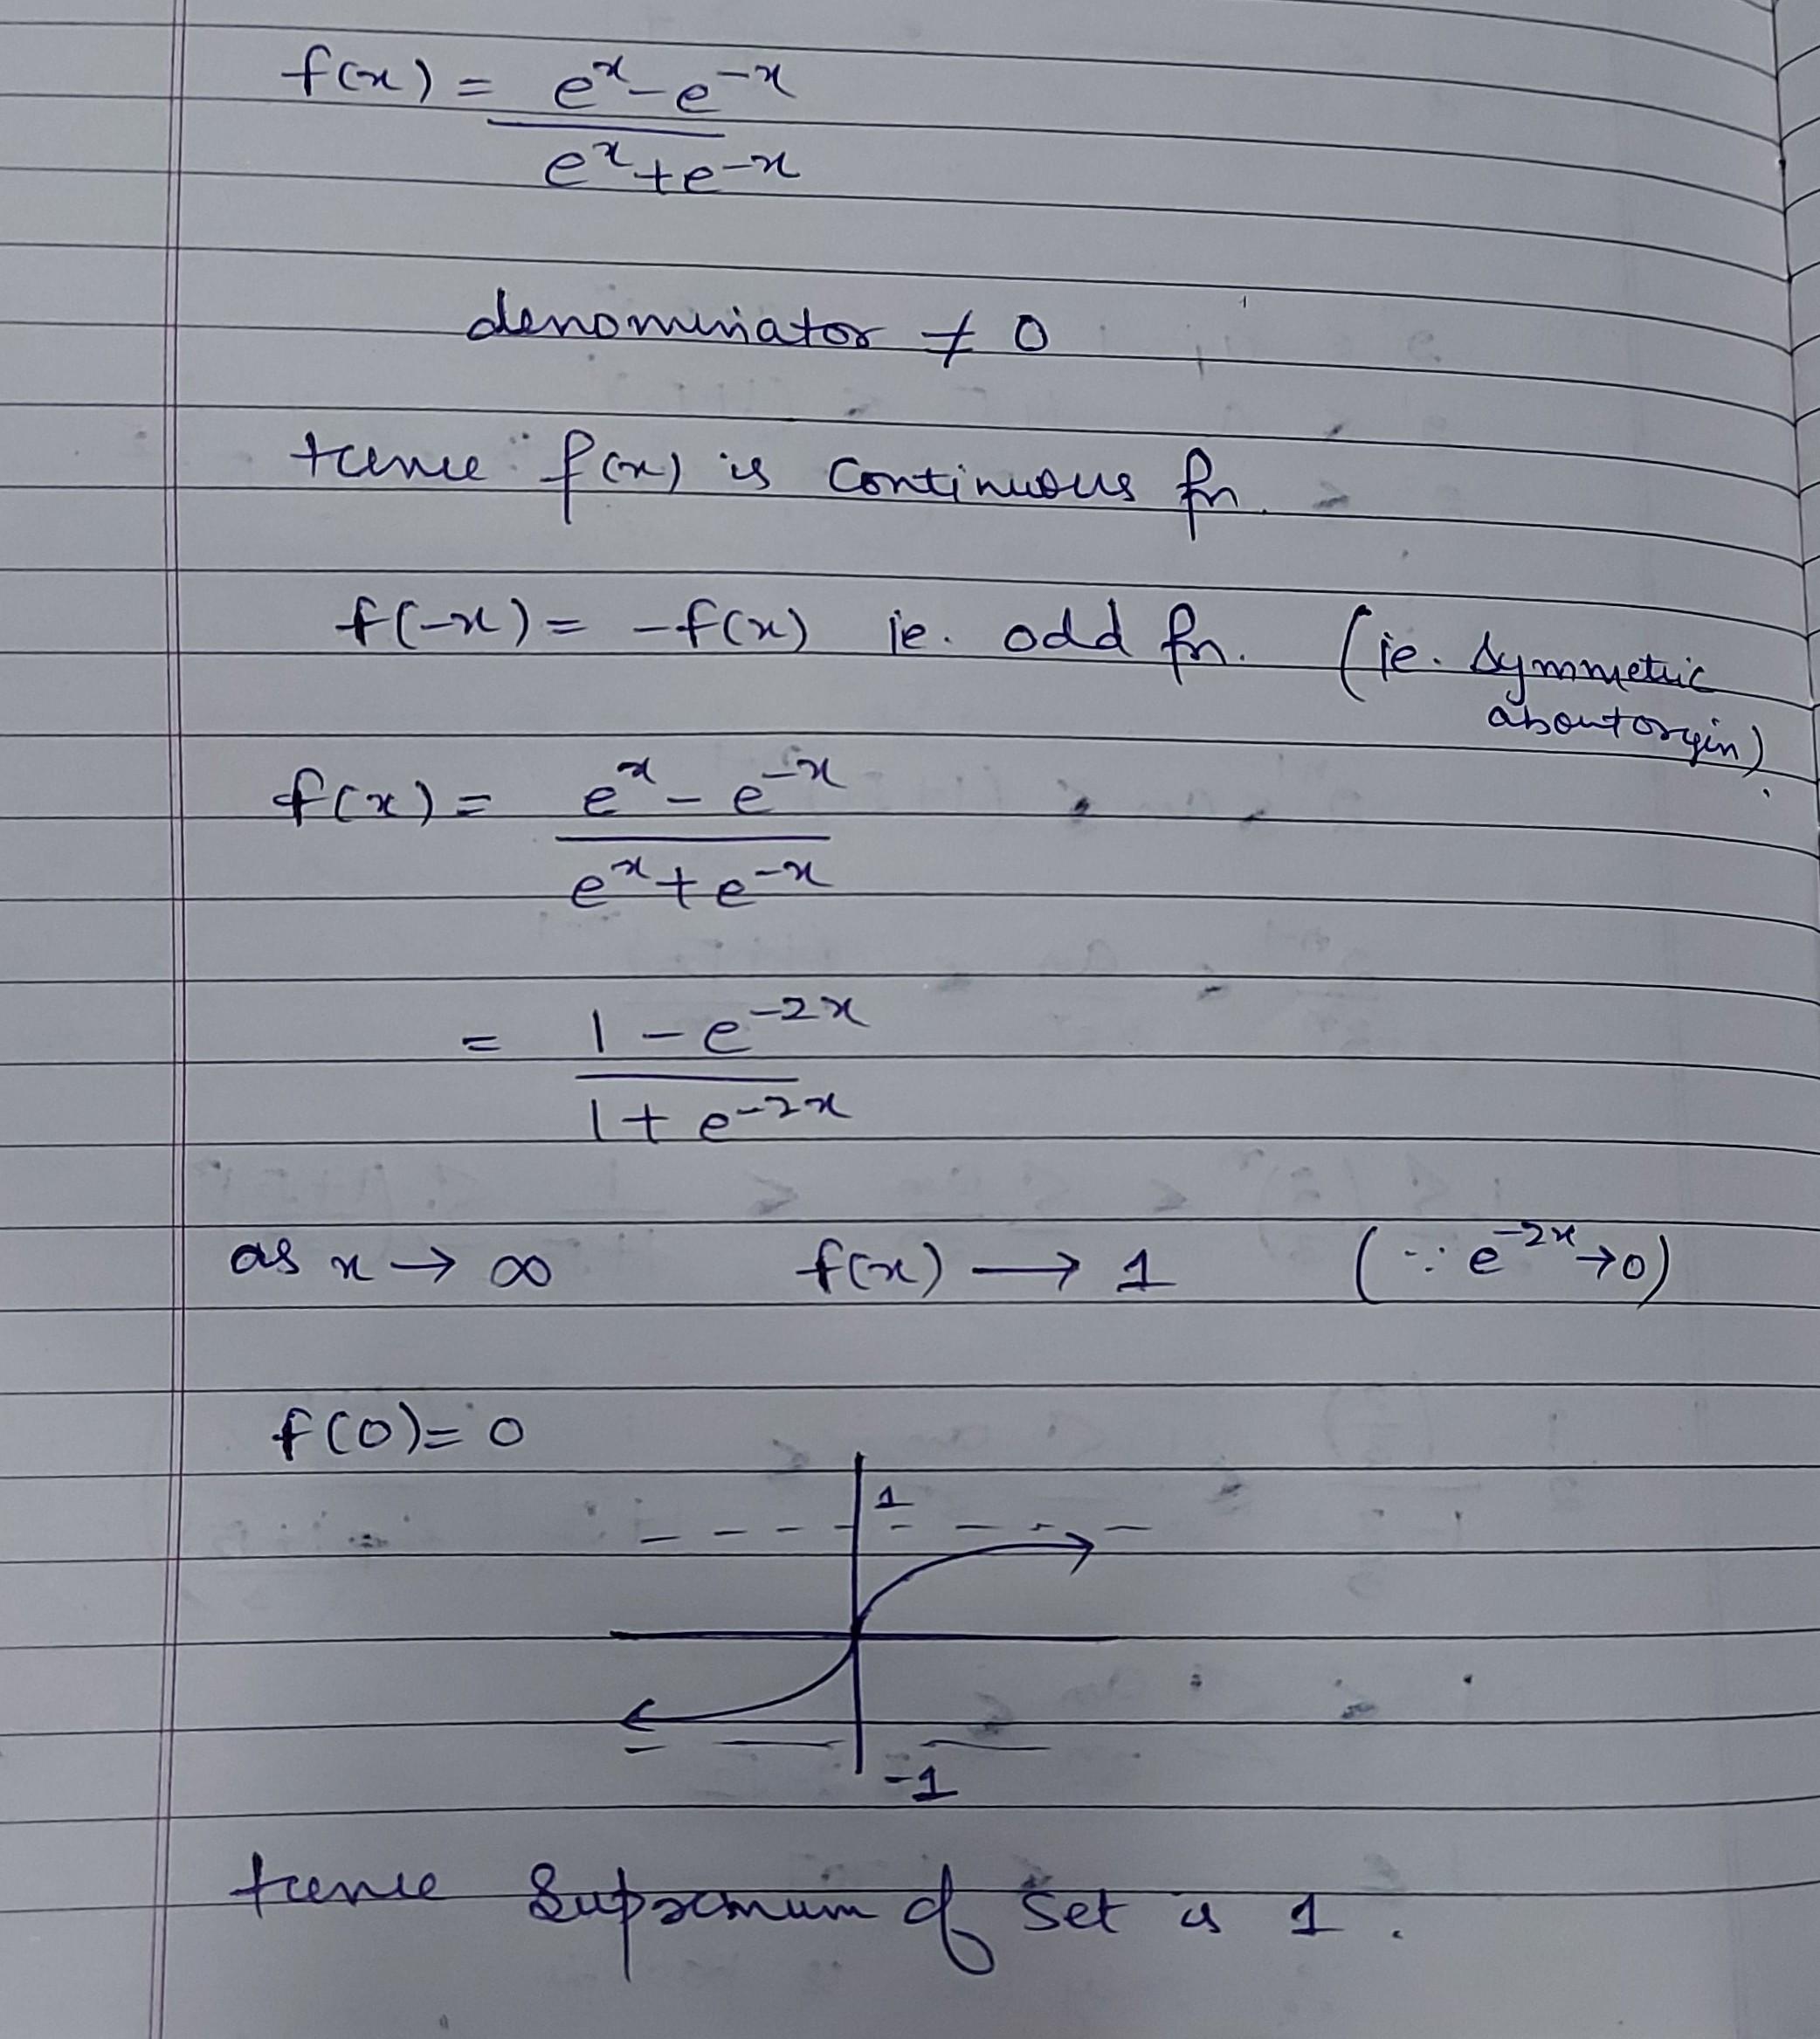 f(x) = e^x - e^-x
e^x + e^-x
denominator ≠ 0
Hence f(x) is continuous fn.
f(-x) = -f(x) ie. odd fn. (ie. symmetric
about orgin)
f(x) = e^x - e^-x
e^x + e^-x
= 1 - e^-2x
1 + e^-2x
as x → ∞ f(x) → 1 (∵ e^-2x → 0)
f(0) = 0
1
-1
Hence Supremum of Set is 1.